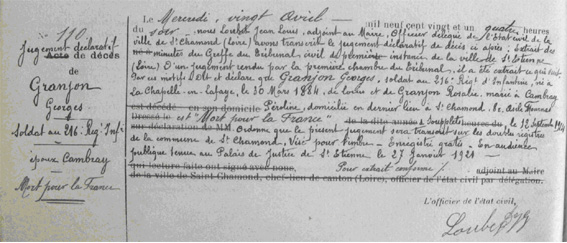 N° 110
Jugement déclaratif
Acte de décès
de
Granjon
Georges
soldat au 216e Rég. Inf.
époux Cambray
Mort pour la France
Le Mercredi, vingt avril mil neuf cent vingt et un quatre heures
du soir, nous Loubet Jean Louis, adjoint au Maire, Officier délégué de l'état civil de la
ville de St Chamond (Loire) avons transcrit le jugement déclaratif de décès ci après : Extrait des
minutes du Greffe du Tribunal civil de première instance de la ville de St Etienne
(Loire) D'un jugement rendu par la première chambre du tribunal, il a été extrait ce qui suit
Par ces motifs Dit et déclare que Granjon Georges, soldat au 216e Rég. d'Infanterie, né à
La Chapelle-en-Lafaye, le 30 Mars 1884, de Louis et de Granjon Rosalie, marié à Cambray
est décédé en son domicile Péroline, domicilié en dernier lieu à St Chamond,
Dressé le est "Mort pour la France" la dite année à heures du, le 12 Septembre 1914
sur déclaration de MM. Ordonne que le présent jugement sera transcrit sur les doubles registres
de la commune de St Chamond, Visé pour timbre - Enregistré gratis - En audience
publique tenue au Palais de Justice de St Etienne le 27 Janvier 1921 -
qui lecture faite ont signé avec nous, Pour extrait conforme / adjoint au Maire
de la ville de Saint Chamond, chef-lieu de canton (Loire), officier de l'état civil par délégation.
L'officier de l'état civil,
Loubet